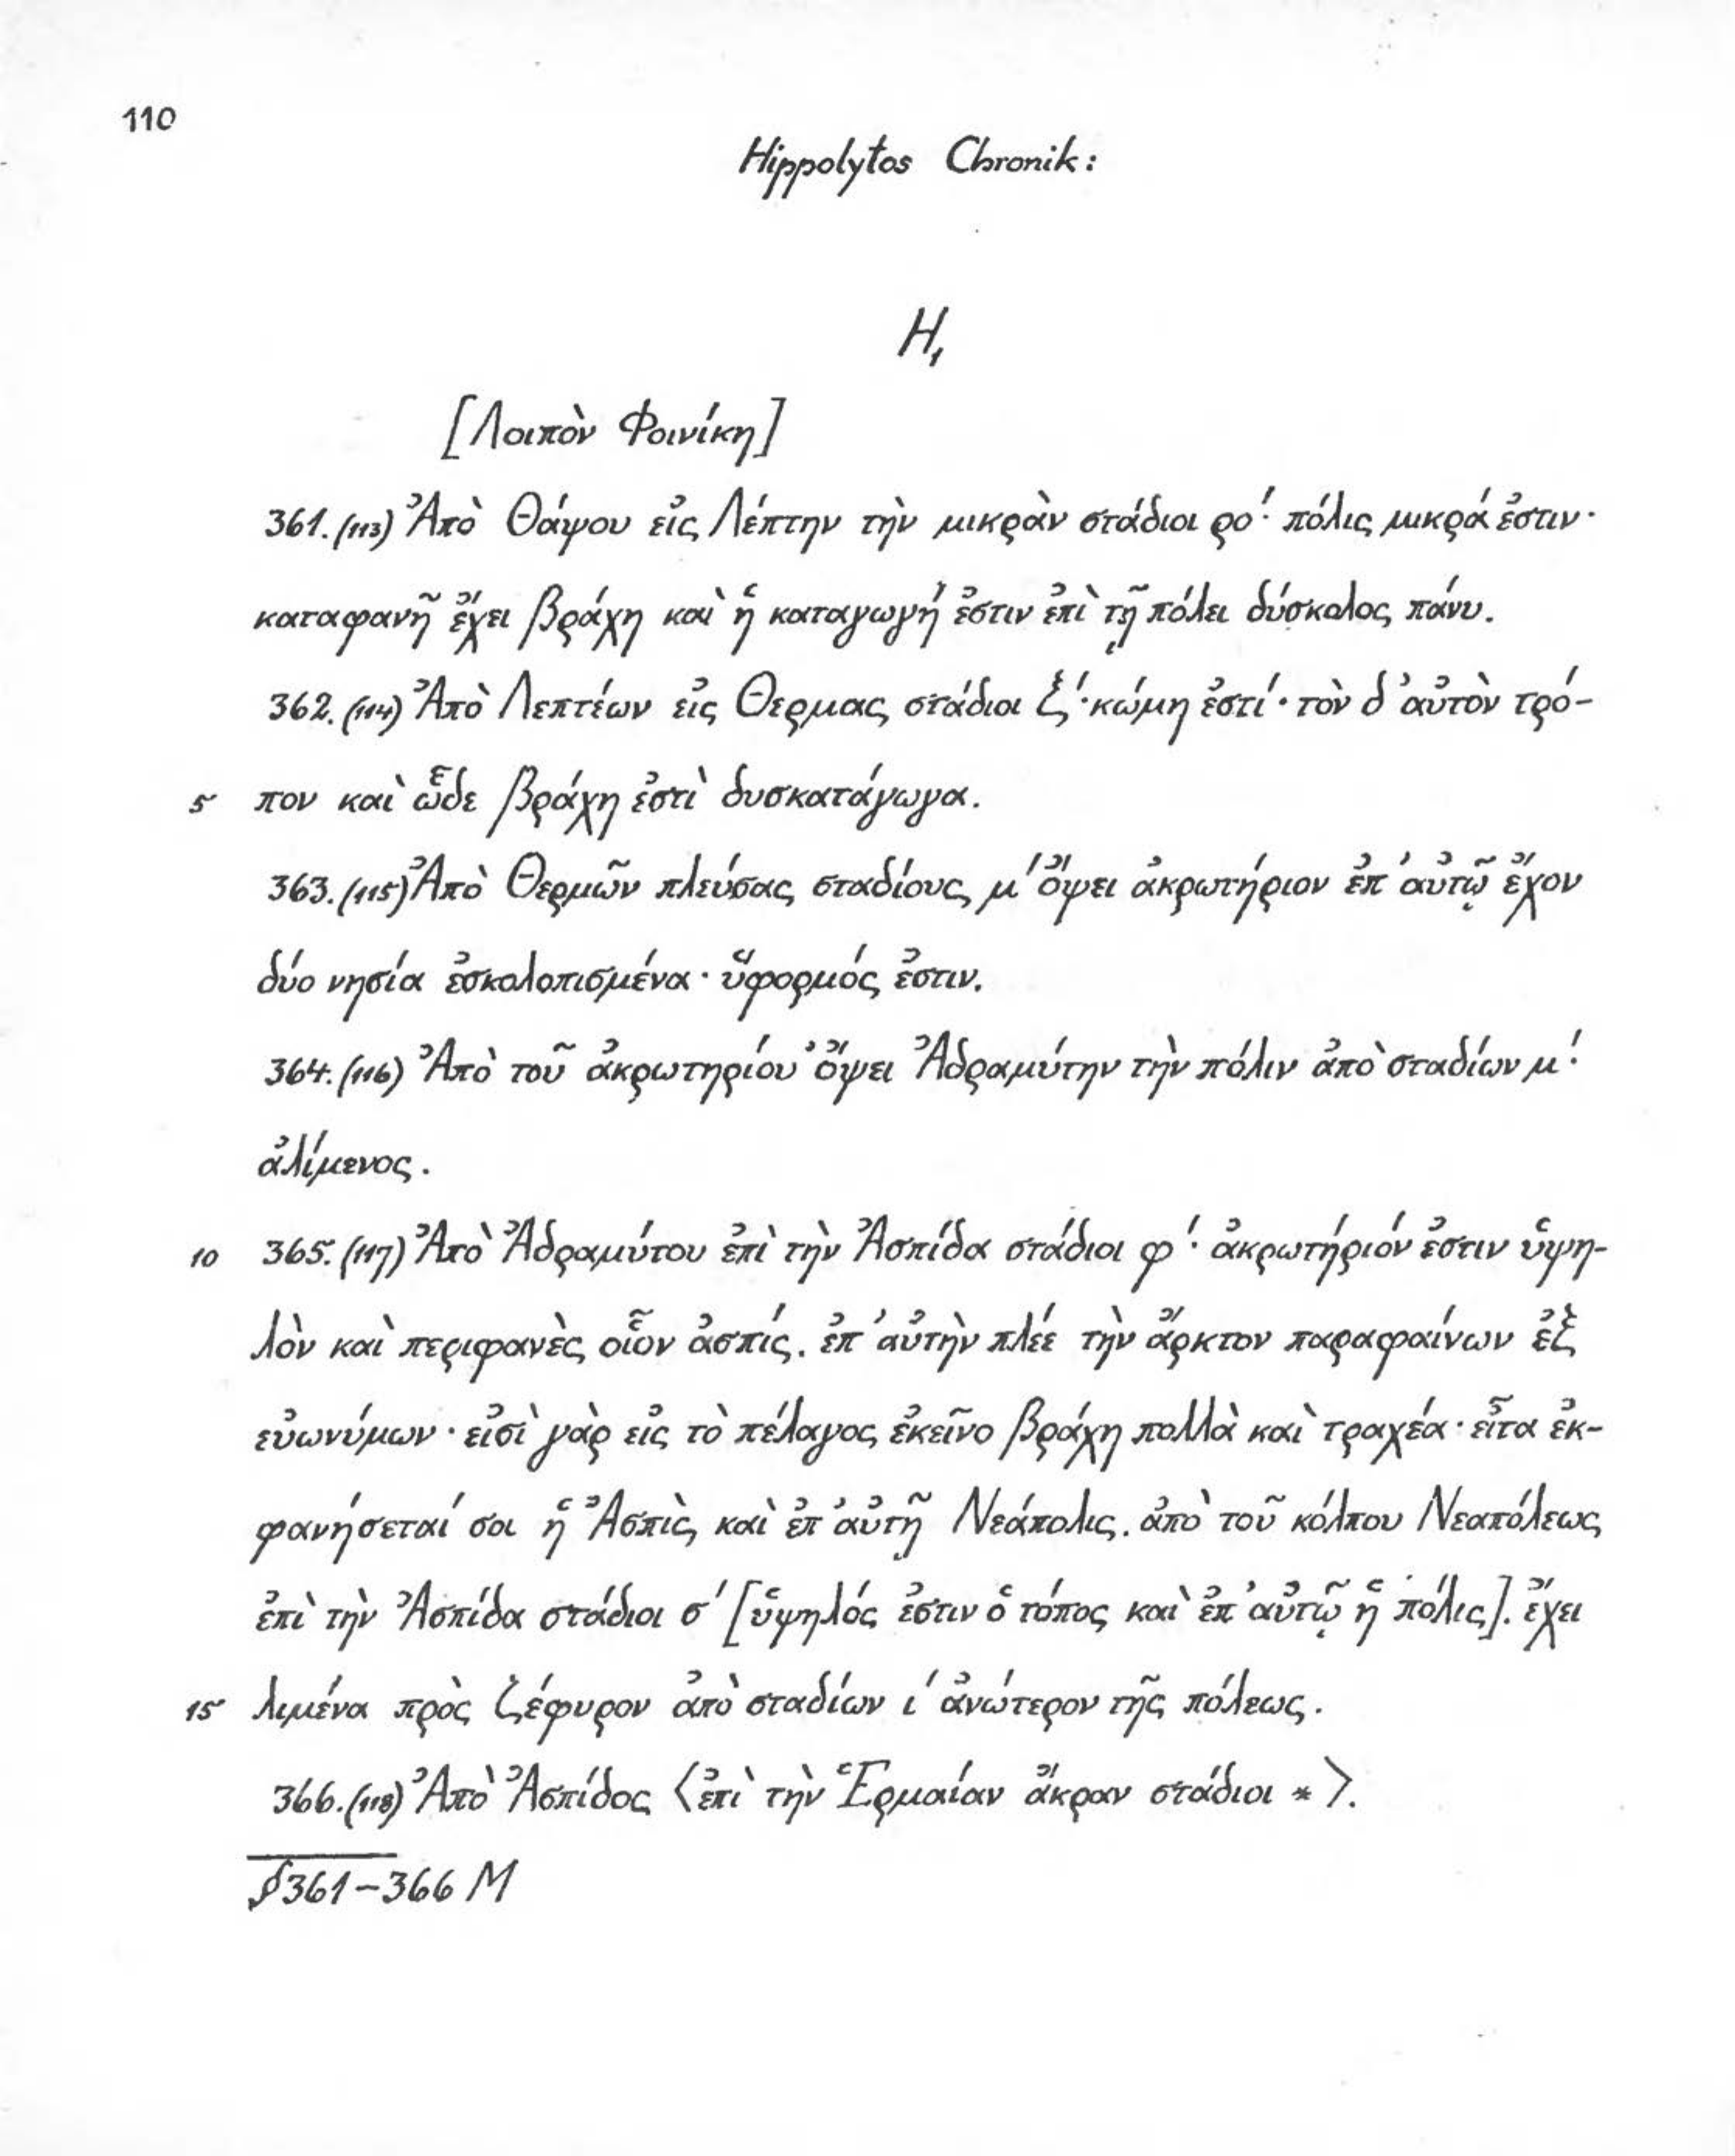 110
Hippolytos Chronik:
H₁
[Λοιπὸν Φοινίκη]
361. (113) Ἀπὸ Θάψου εἰς Λέπτην τὴν μικρὰν στάδιοι ρο′· πόλις μικρά ἐστιν·
καταφανῆ ἔχει βράχη καὶ ἡ καταγωγή ἐστιν ἐπὶ τῇ πόλει δύσκολος πάνυ.
362. (114) Ἀπὸ Λεπτέων εἰς Θερμας στάδιοι ξ′· κώμη ἐστί· τὸν δ᾽ αὐτὸν τρό-
5 πον καὶ ὧδε βράχη ἐστὶ δυσκατάγωγα.
363. (115) Ἀπὸ Θερμῶν πλεύσας σταδίους μ′ ὄψει ἀκρωτήριον ἐπ᾽ αὐτῷ ἔχον
δύο νησία ἐσκολοπισμένα· ὕφορμός ἐστιν.
364. (116) Ἀπὸ τοῦ ἀκρωτηρίου ὄψει Ἀδραμύτην τὴν πόλιν ἀπὸ σταδίων μ′·
ἀλίμενος.
10 365. (117) Ἀπὸ Ἀδραμύτου ἐπὶ τὴν Ἀσπίδα στάδιοι φ′· ἀκρωτήριόν ἐστιν ὑψη-
λὸν καὶ περιφανὲς οἷον ἀσπίς. ἐπ᾽ αὐτὴν πλέε τὴν ἄρκτον παραφαίνων ἐξ
εὐωνύμων· εἰσὶ γὰρ εἰς τὸ πέλαγος ἐκεῖνο βράχη πολλὰ καὶ τραχέα· εἶτα ἐκ-
φανήσεταί σοι ἡ Ἀσπὶς καὶ ἐπ᾽ αὐτῇ Νεάπολις. ἀπὸ τοῦ κόλπου Νεαπόλεως
ἐπὶ τὴν Ἀσπίδα στάδιοι σ′ [ὑψηλός ἐστιν ὁ τόπος καὶ ἐπ᾽ αὐτῷ ἡ πόλις]. ἔχει
15 λιμένα πρὸς ζέφυρον ἀπὸ σταδίων ι′ ἀνώτερον τῆς πόλεως.
366. (118) Ἀπὸ Ἀσπίδος ⟨ἐπὶ τὴν Ἑρμαίαν ἄκραν στάδιοι *⟩.
§361–366 M